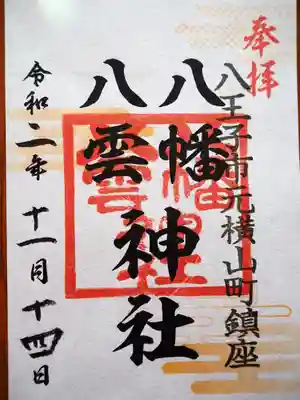 奉拝
八王子市元横山町鎮座
八幡神社
八雲
令和二年十一月十四日